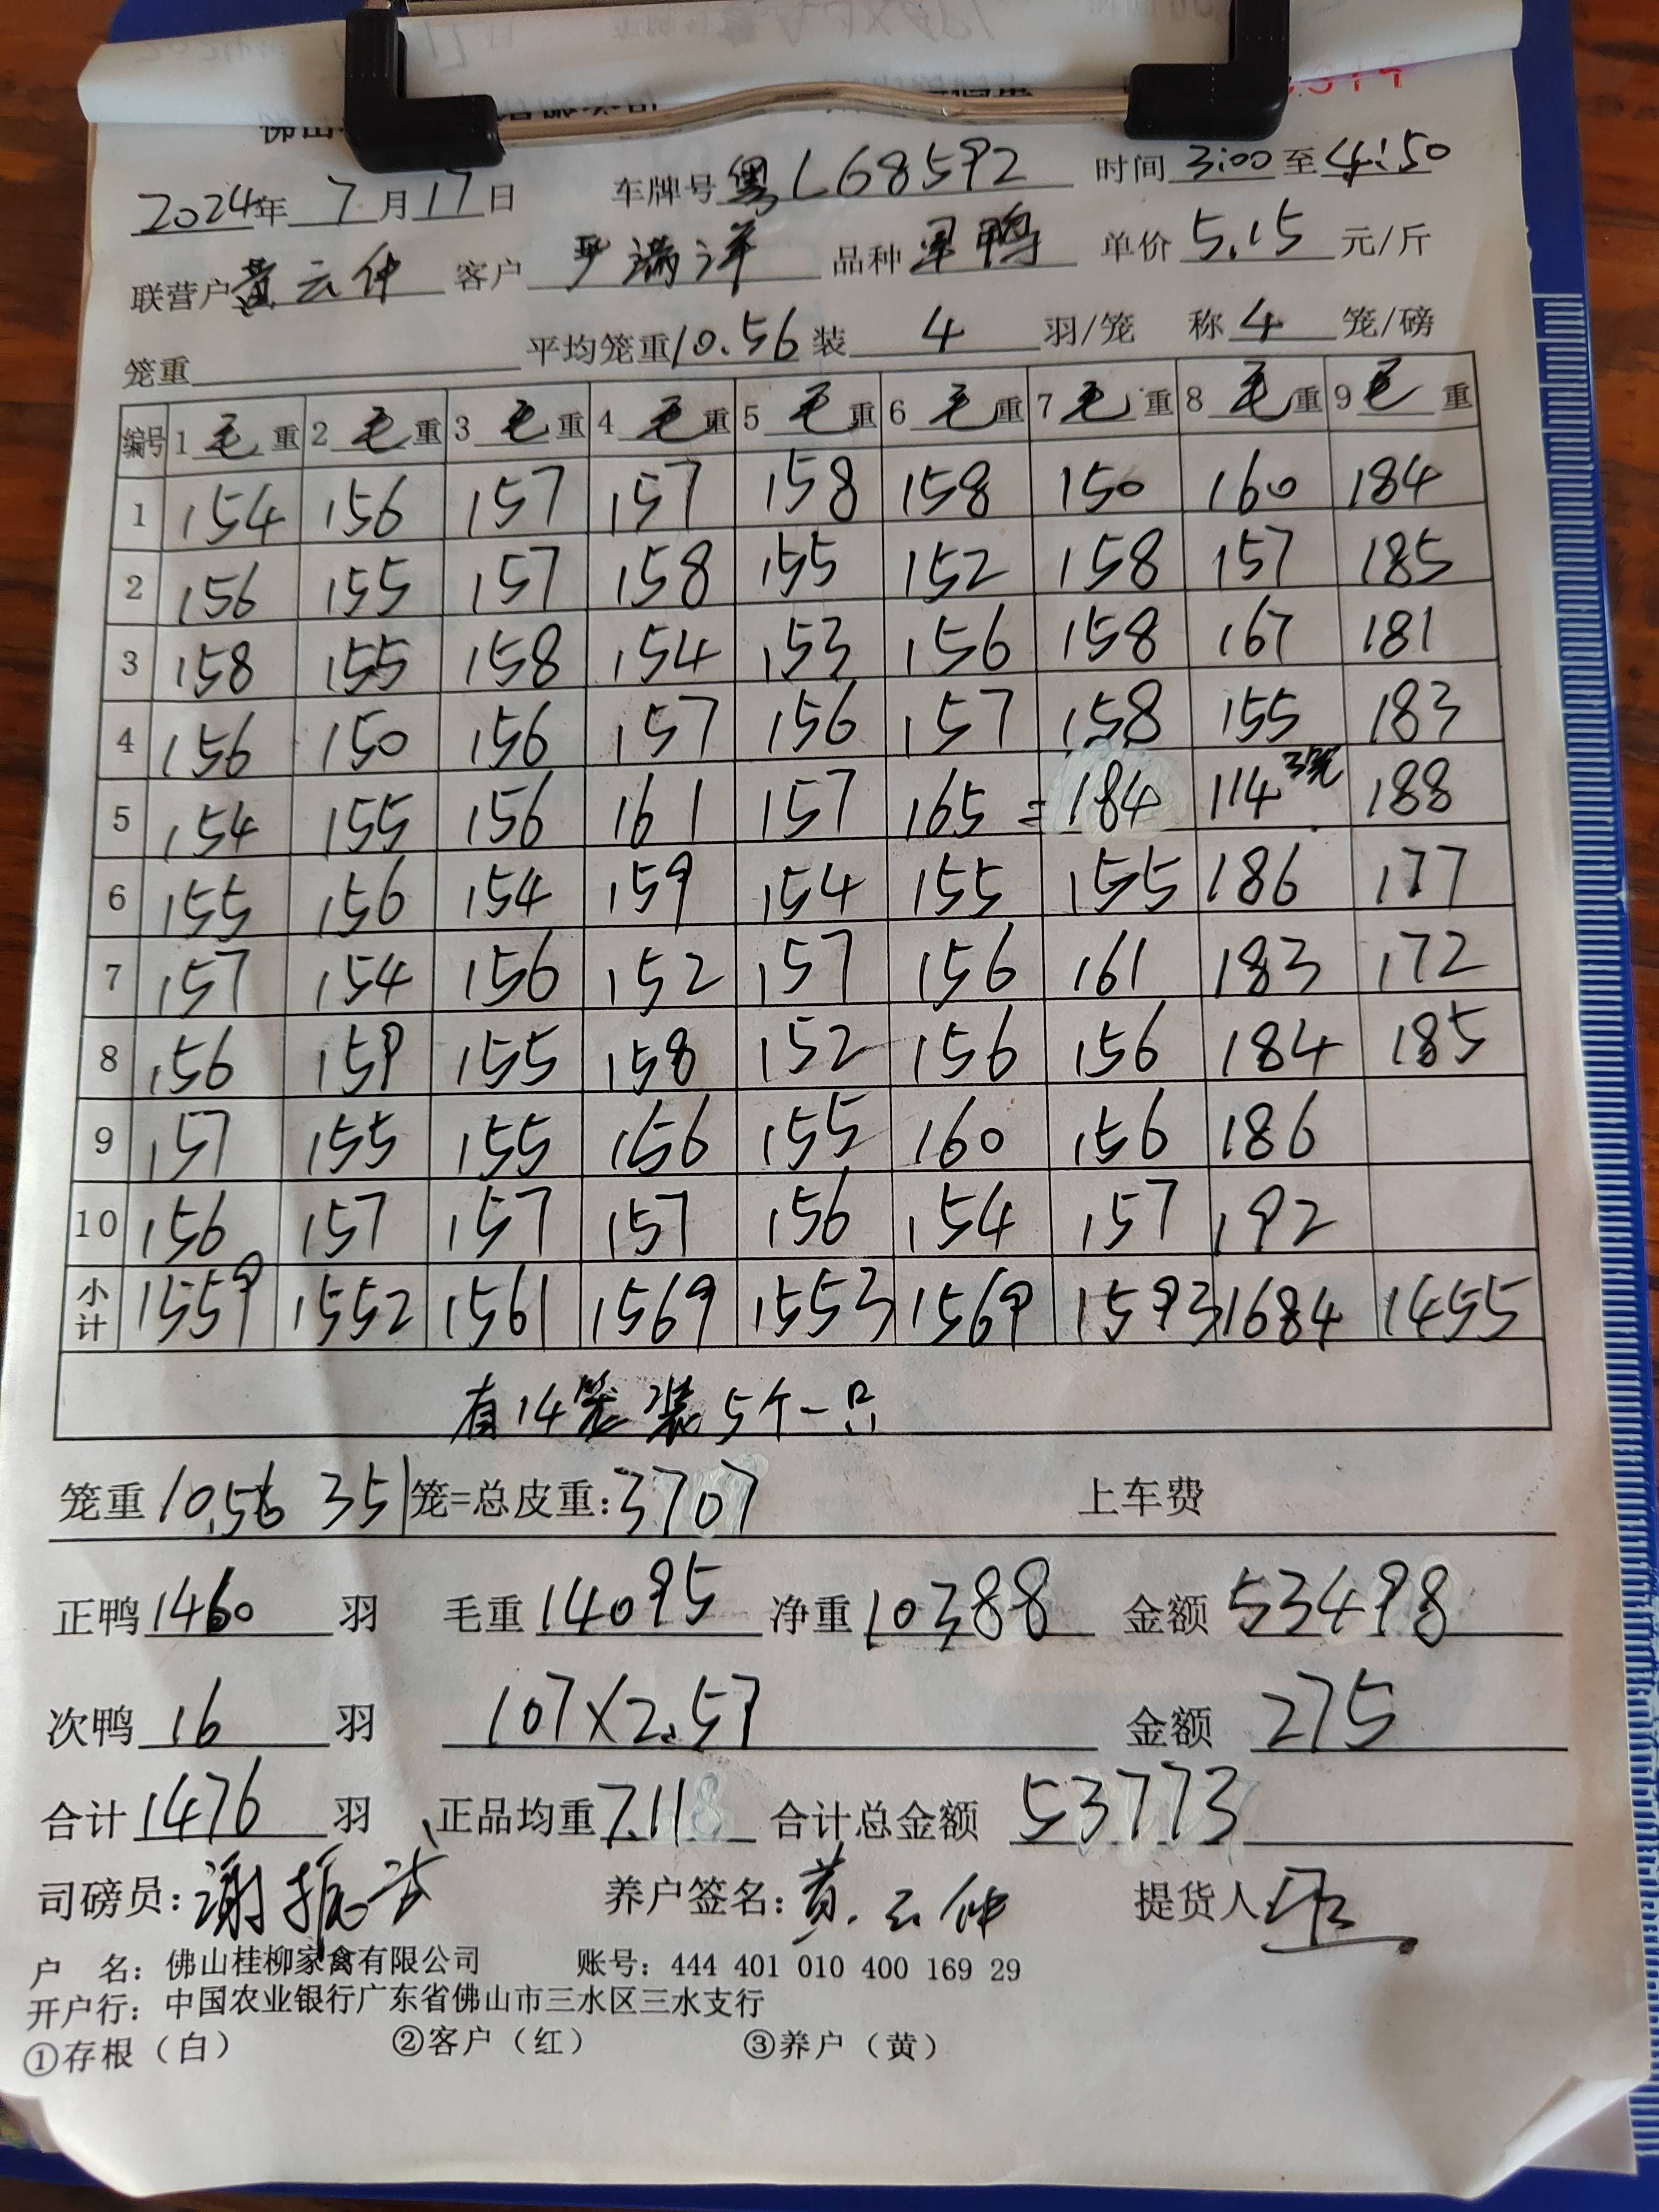 2024年 7 月 17 日 车牌号 粤L68592 时间 3:00 至 4:50
联营户 黄云仲 客户 尹满洋 品种 军鸭 单价 5.15 元/斤
笼重 平均笼重 10.56 装 4 羽/笼 称 4 笼/磅
编号 1 毛 重 2 毛 重 3 毛 重 4 毛 重 5 毛 重 6 毛 重 7 毛 重 8 毛 重 9 毛 重
1 154 156 157 157 158 158 150 160 184
2 156 155 157 158 155 152 158 157 185
3 158 155 158 154 153 156 158 167 181
4 156 150 156 157 156 157 158 155 183
5 154 155 156 161 157 165 = 184 114 3笼 188
6 155 156 154 159 154 155 155 186 177
7 157 154 156 152 157 156 161 183 172
8 156 159 155 158 152 156 156 184 185
9 157 155 155 156 155 160 156 186
10 156 157 157 157 156 154 157 192
小计 1559 1552 1561 1569 1553 1569 1593 1684 1455
有14笼装5个一只
笼重 10.56 351 笼=总皮重: 3707 上车费
正鸭 1460 羽 毛重 14095 净重 10388 金额 53498
次鸭 16 羽 107×2.57 金额 275
合计 1476 羽 正品均重 7.118 合计总金额 53773
司磅员: 谢振 养户签名: 黄云仲 提货人
户 名: 佛山桂柳家禽有限公司 账号: 444 401 010 400 169 29
开户行: 中国农业银行广东省佛山市三水区三水支行
①存根（白） ②客户（红） ③养户（黄）